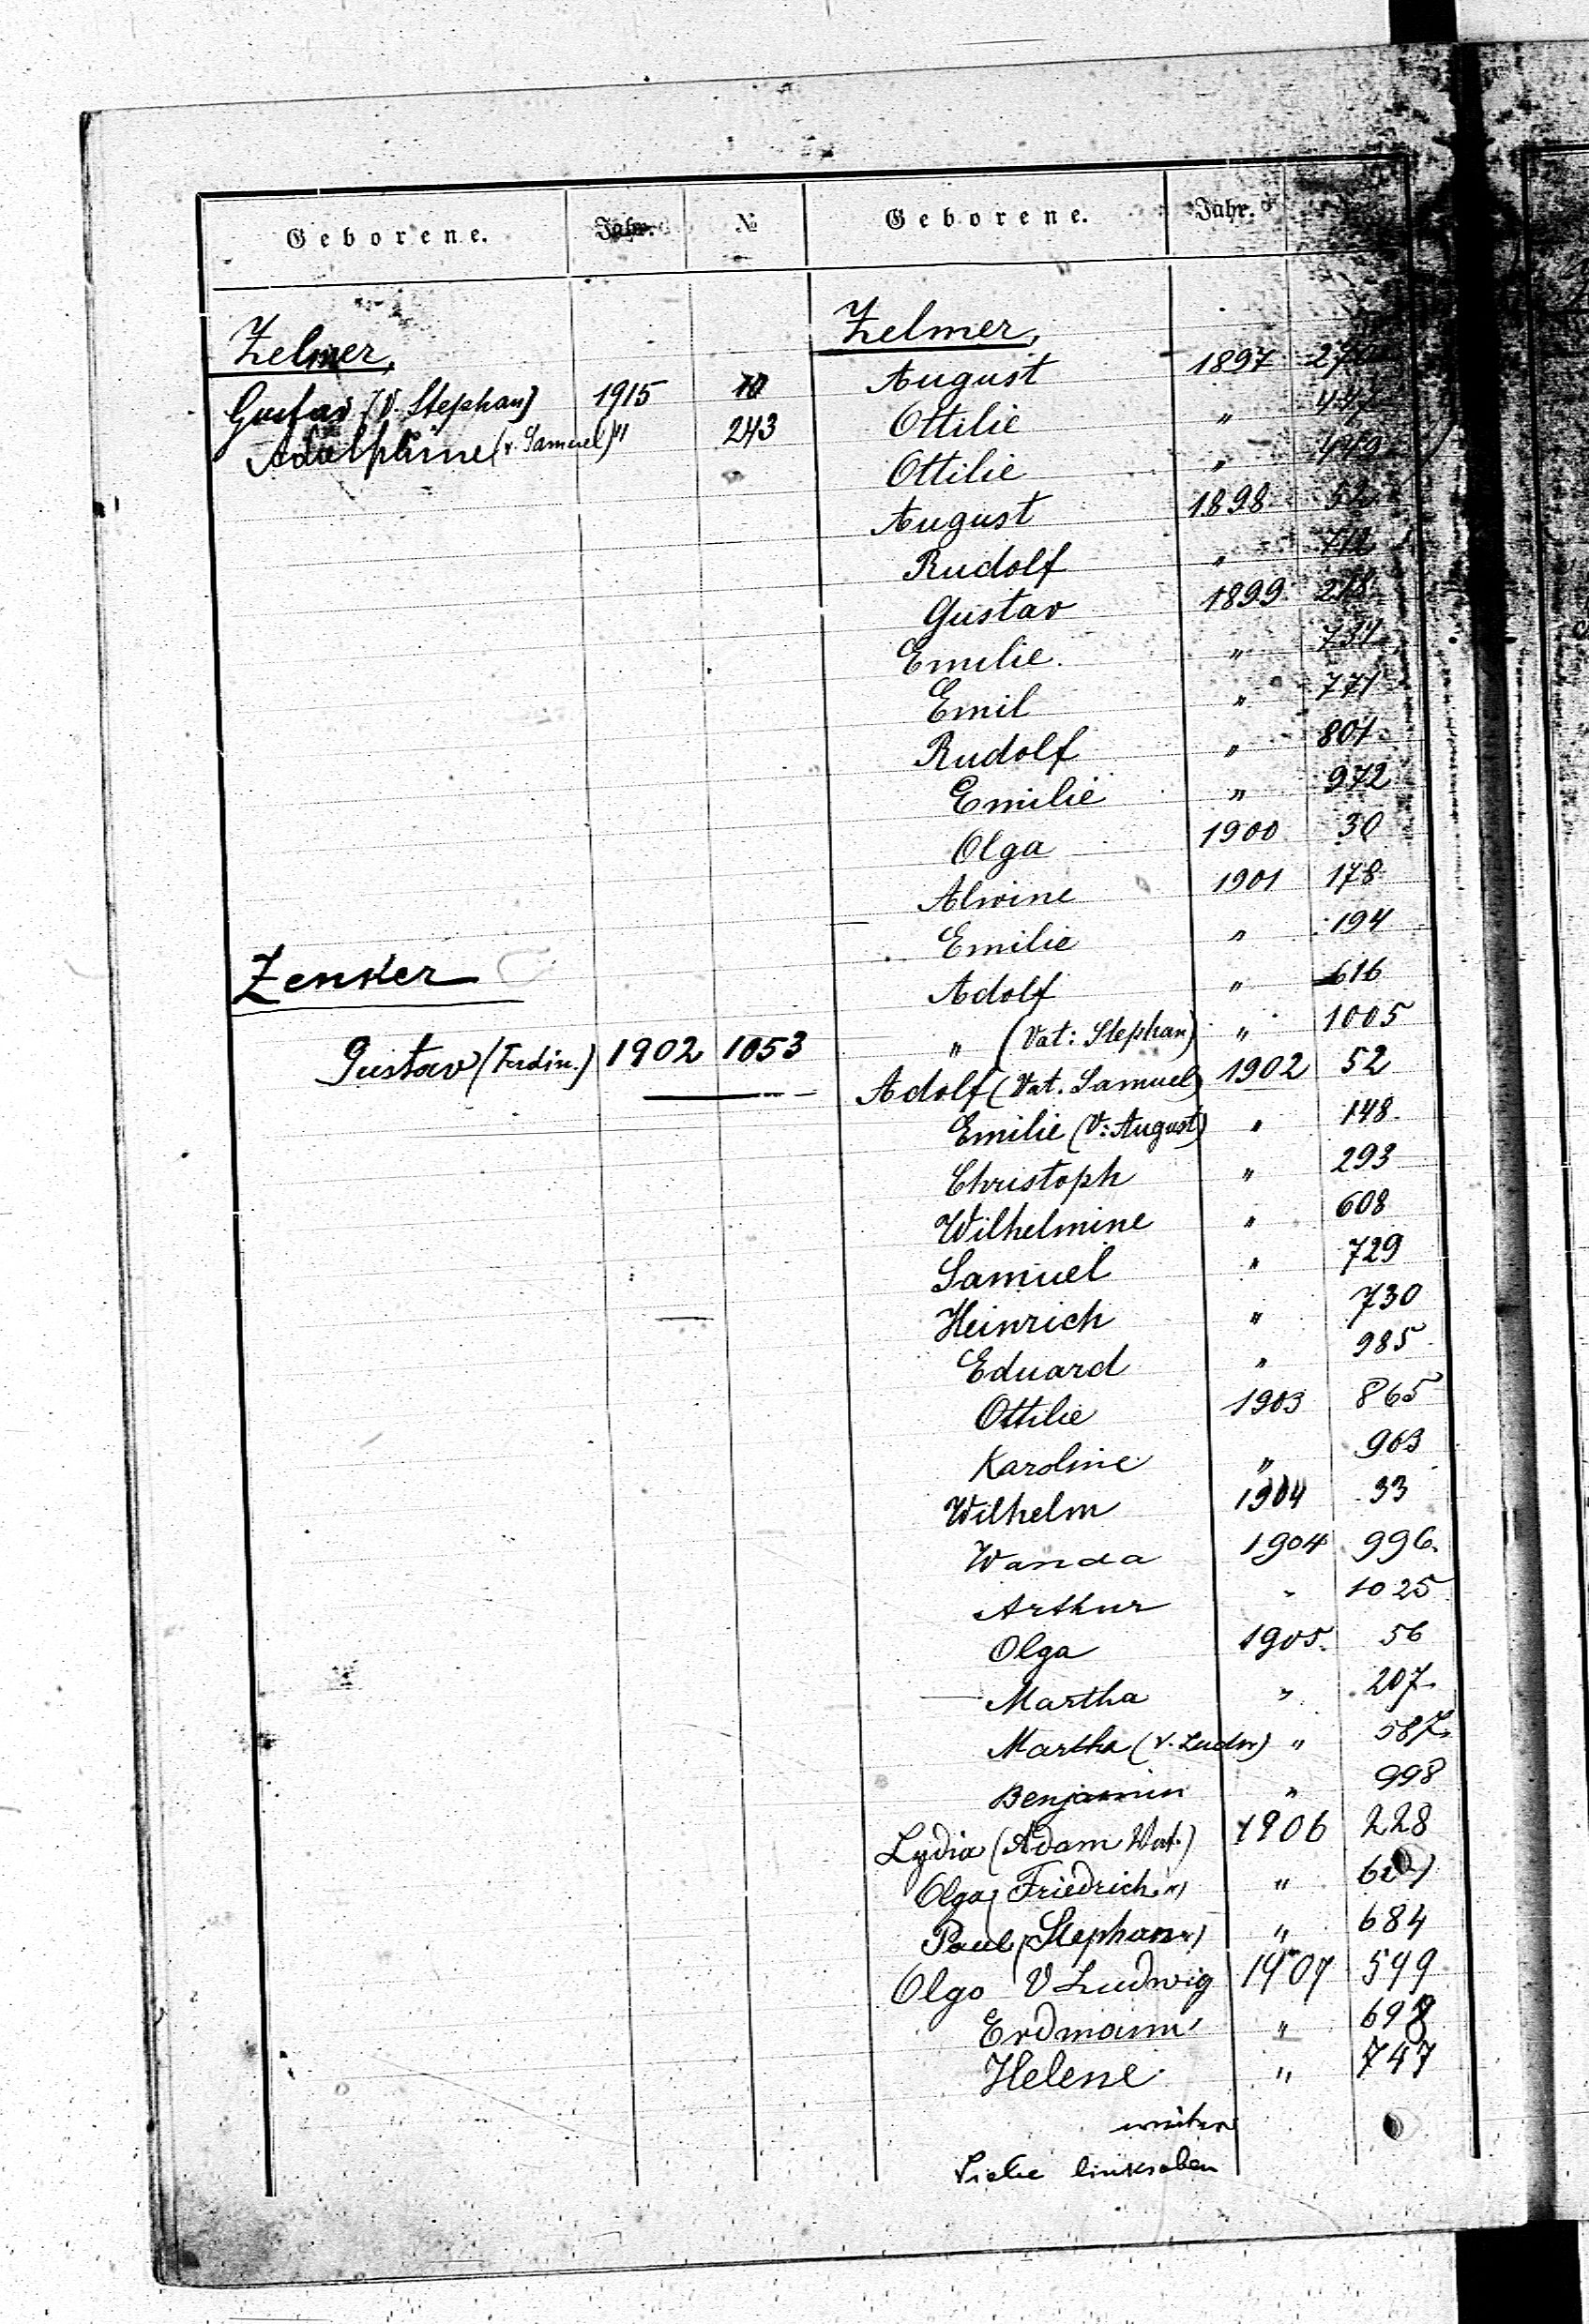 Geborene. Jahr. №
Zelmer,
Gustav (V. Stephan) 1915 10
Adolphine (v. Samuel) " 243
Zenker
Gustav (Ferdin.) 1902 1053
Geborene. Jahr.
Zelmer,
August 1897
Ottilie " 447
Ottilie " 449
August 1898 52
Rudolf " 112
Gustav 1899 218
Emilie. " 731
Emil " 771
Rudolf " 801
Emilie " 972
Olga 1900 30
Alwine 1901 178
Emilie " 194
Adolf " 616
" (Vat: Stephan) " 1005
Adolf (Vat. Samuel) 1902 52
Emilie (V: August) " 148.
Christoph " 293
Wilhelmine " 608
Samuel " 729
Heinrich " 730
Eduard " 985
Ottilie 1903 865
Karoline " 963
Wilhelm 1904 33
Wanda 1904 996.
Arthur " 1025
Olga 1905. 56
Martha " 207.
Martha (v. Ludw) " 587.
Benjamin " 998
Lydia (Adam Vat.) 1906 228
Olga (Friedrich ") "
Paul (Stephan ") " 684
Olgo V Ludwig 1907 599
Erdmann " 698
Helene " 747
weiter
Siehe links oben